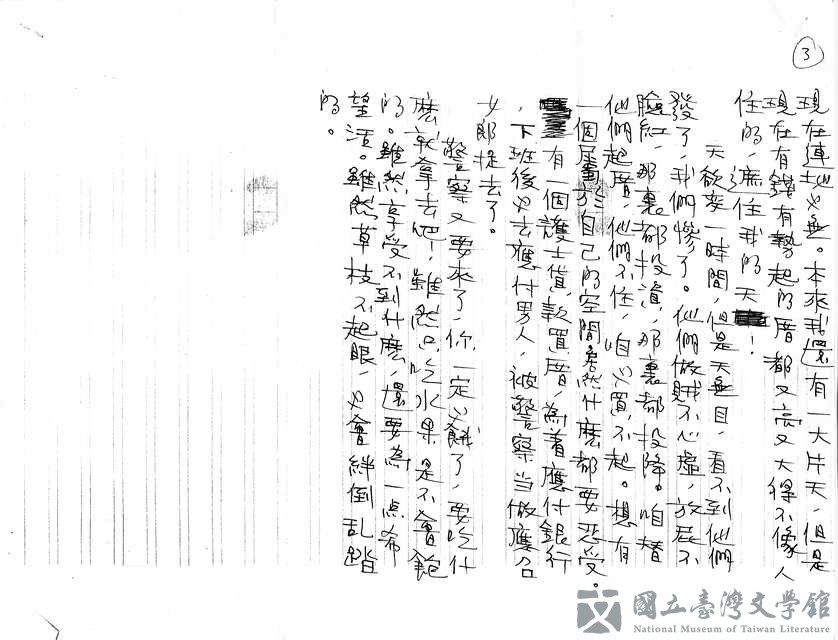 3
現在連地也無。本來我還有一大片天，但是
現在有錢有勢起的厝都又高又大得不像人
住的，遮住我的天！
天欲來一時間，但是天無目，看不到他們
發了，我們慘了。他們做賊不心虛，放屁不
臉紅，那裏都投資，那裏都投降。咱替
他們起厝，他們不住，咱買不起。想有
一個屬於自己的空間居然什麼都要忍受。
有一個護士貸款買厝，為着應付銀行
，下班後也去應付男人，被警察当做應召
女郎捉去了。
警察又要來了，你一定必餓了，要吃什
麼就拿去吧！雖然只吃水果是不會飽
的。雖然享受不到什麼，還要為一点希
望活。雖然草枝不起眼，也會絆倒乱踏
的。
國立臺灣文學館
National Museum of Taiwan Literature